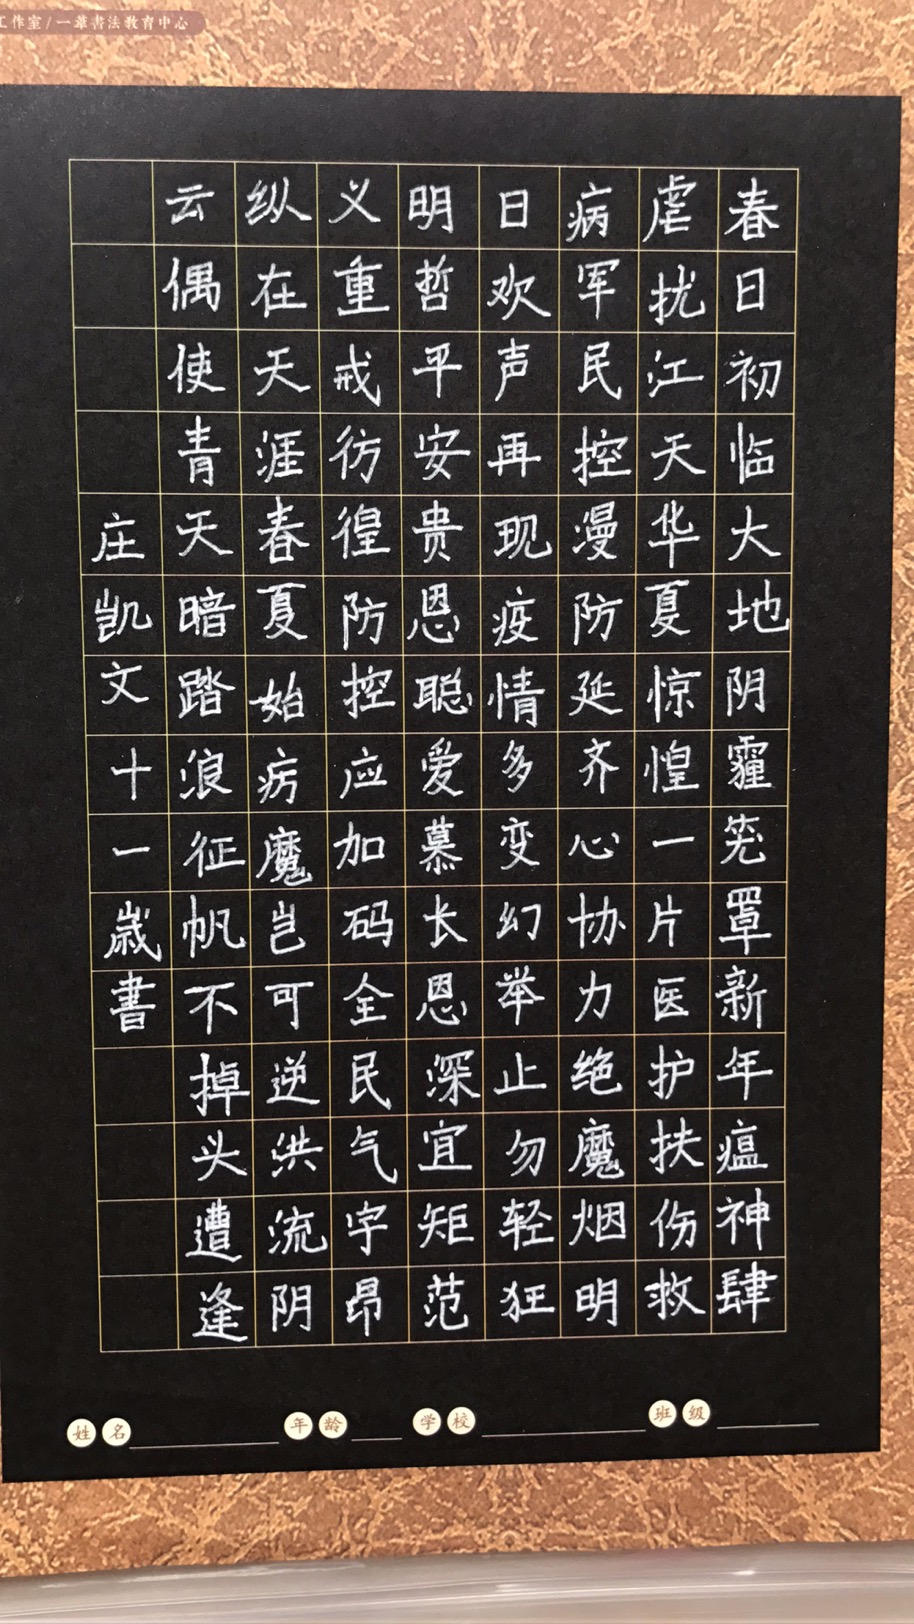 工作室/一葦書法教育中心
春日初临大地阴霾笼罩新年瘟神肆
虐扰江天华夏惊惶一片医护扶伤救
病军民控漫防延齐心协力绝魔烟明
日欢声再现疫情多变幻举止勿轻狂
明哲平安贵恩聪爱慕长恩深宜矩范
义重戒彷徨防控应加码全民气宇昂
纵在天涯春夏始疠魔岂可逆洪流阴
云偶使青天暗踏浪征帆不掉头遭逢
庄凯文十一歲書
姓名 年龄 学校 班级